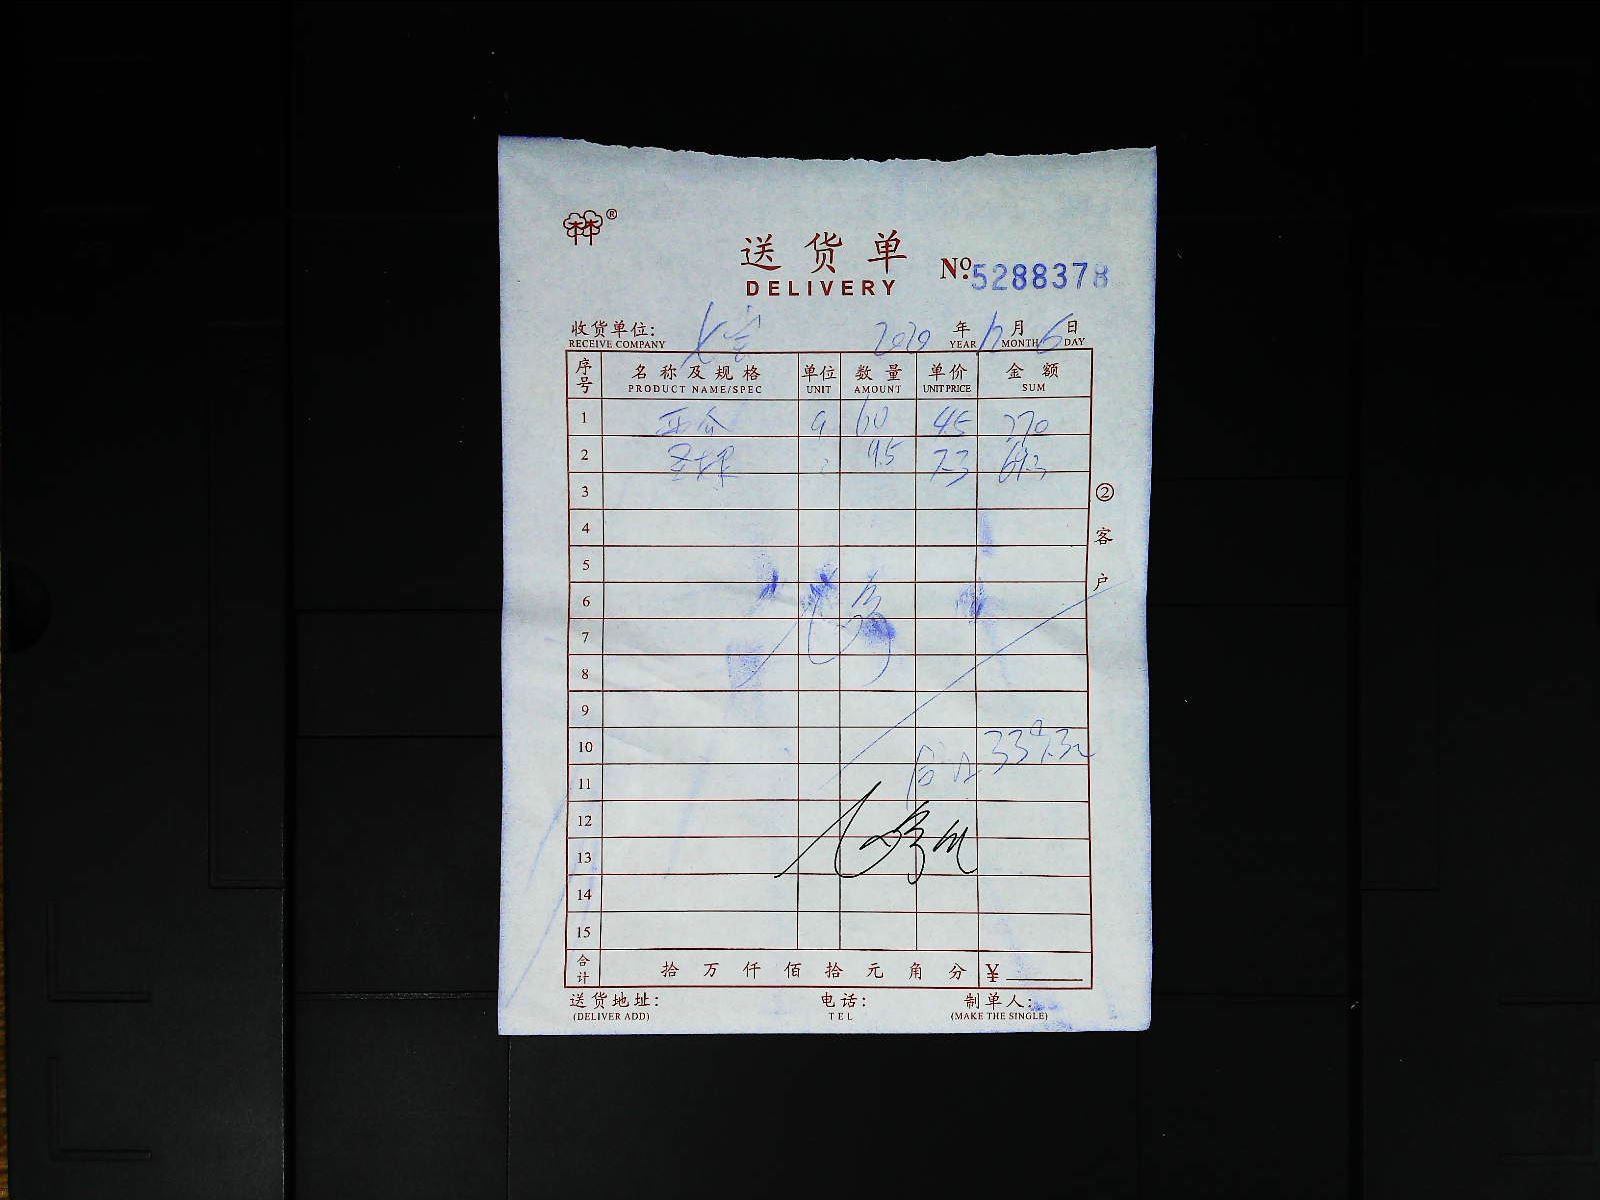 林®
送货单
DELIVERY
№ 5288378
收货单位: 2020 年 12 月 6 日
RECEIVE COMPANY YEAR MONTH DAY
序号 名称及规格 单位 数量 单价 金额
PRODUCT NAME/SPEC UNIT AMOUNT UNIT PRICE SUM
1 西瓜 60 4.5 270
2 9.5 7.3 69.3
3
4
5
6
7
8
9
10
合计 339.3元
11
12
13
14
15
合计 拾 万 仟 佰 拾 元 角 分 ¥
送货地址: 电话: 制单人:
(DELIVER ADD) TEL (MAKE THE SINGLE)
② 客户